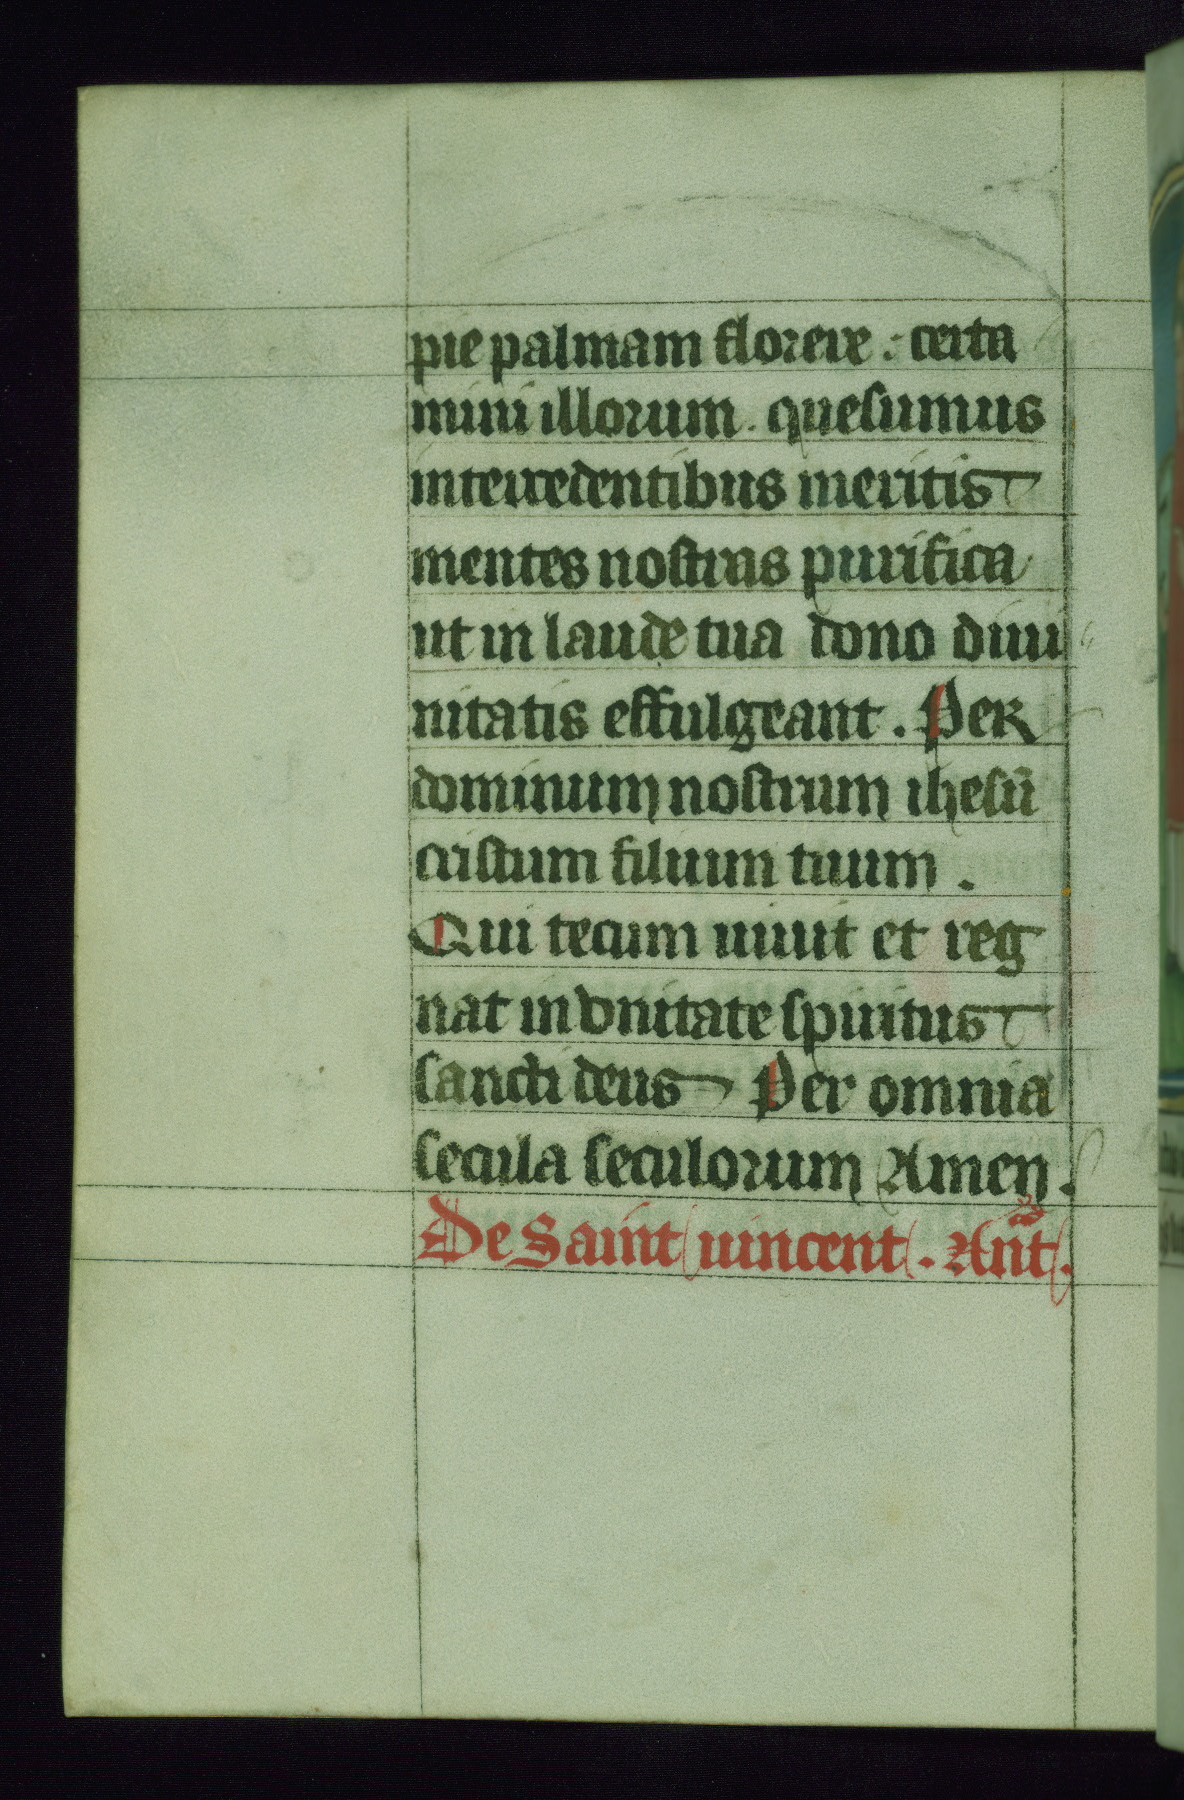 pie palmam florere : certa
mini illorum . quesumus
intercedentibus meritis
mentes nostras purifica
ut in laude tua dono diui
nitatis effulgeant . Per
dominum nostrum ihesū
cristum filium tuum .
Qui tecum uiuit et reg
nat in vnitate spiritus
sancti deus Per omnia
secula seculorum Amen .
De Saint uincent . Ant̄ .